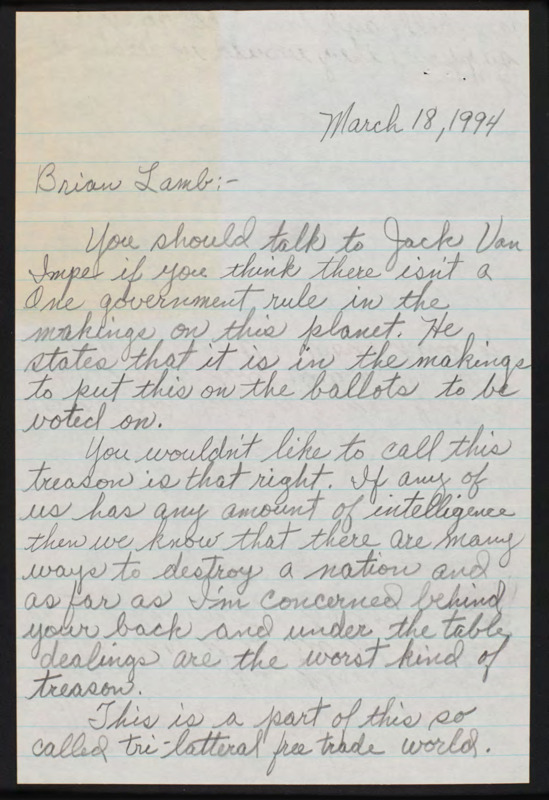 March 18, 1994
Brian Lamb:-
You should talk to Jack Van
Impe if you think there isn't a
One government rule in the
makings on this planet. He
states that it is in the makings
to put this on the ballots to be
voted on.
You wouldn't like to call this
treason is that right. If any of
us has any amount of intelligence
then we know that there are many
ways to destroy a nation and
as far as I'm concerned behind
your back and under the table
dealings are the worst kind of
treason.
This is a part of this so
called tri-latteral free trade world.